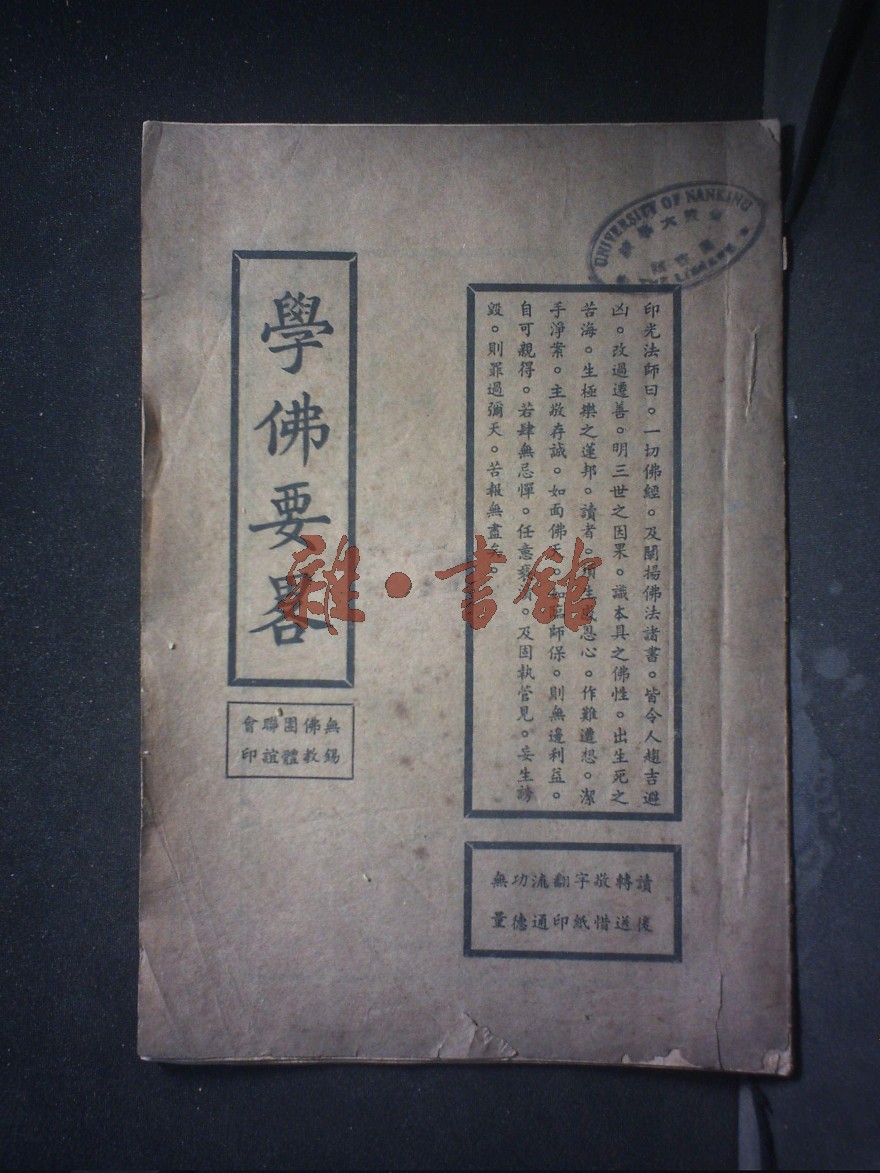 UNIVERSITY OF NANKING
THE LIBRARY
印光法師曰。一切佛經。及闡揚佛法諸書。皆令人趨吉避
凶。改過遷善。明三世之因果。識本具之佛性。出生死之
苦海。生極樂之蓮邦。讀者。須生感恩心。作難遭想。潔
手淨案。主敬存誠。如面佛天。如臨師保。則無邊利益。
自可親得。若肆無忌憚。任意褻。及固執管見。妄生謗
毀。則罪過彌天。苦報無盡矣。
讀後轉送敬惜字紙翻印流通功德無量
學佛要畧
無錫佛教團體聯誼會印
雜·書館